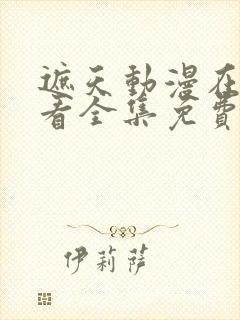 遮天動漫在
看全集免費
伊莉薩